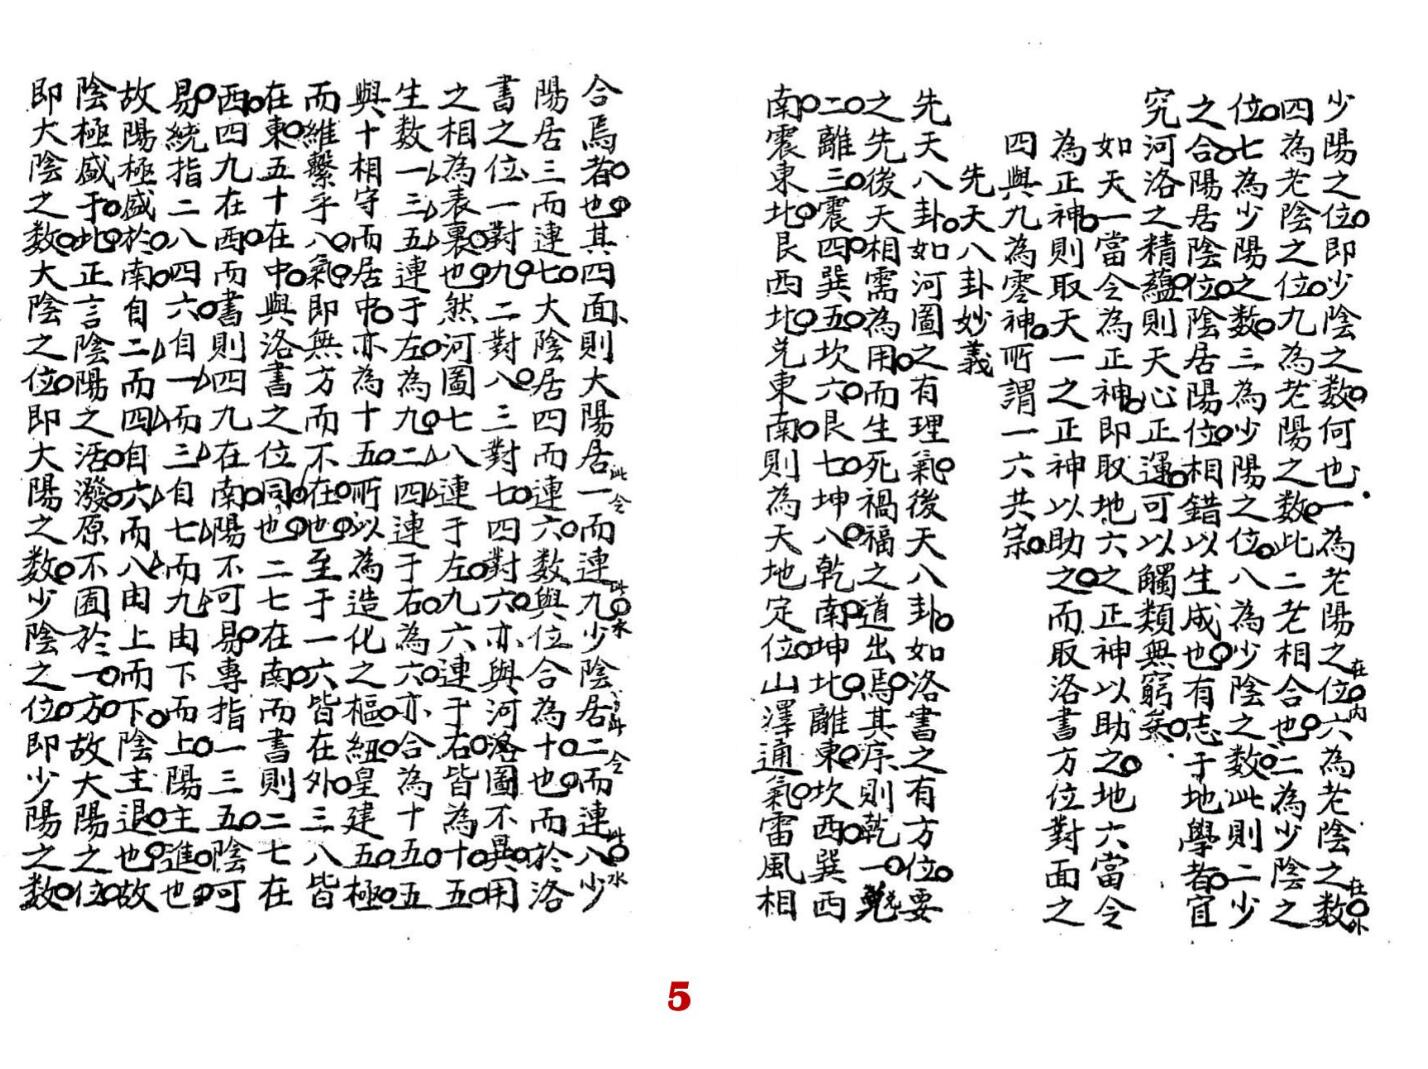 合焉者也其四面則大陽居一而連九少陰居二而連八少
此令
此水
此令
此水
陽居三而連七大陰居四而連六數與位合為十也而於洛
書之位一對九二對八三對七四對六亦與河洛圖不異用
之相為表裏也然河圖七八連于左九六連于右皆為十五
生數一三五連于左為九二四連于右為六亦合為十五五
與十相守而居中亦為十五所以為造化之樞紐皇建五極
而維繫乎八氣即無方而不在也至于一六皆在外三八皆
在東五十在中與洛書之位同也二七在南而書則二七在
西四九在西而書則四九在南陽不可易專指一三五陰可
易統指二八四六自一而三自七而九由下而上陽主進也
故陽極盛於南自二而四自六而八由上而下陰主退也故
陰極盛于北正言陰陽之活潑原不囿於一方故大陽之位
即大陰之數大陰之位即大陽之數少陰之位即少陽之數
少陽之位即少陰之數何也一為老陽之位六為老陰之數
在內
在外
四為老陰之位九為老陽之數此二老相合也二為少陰之
位七為少陽之數三為少陽之位八為少陰之數此則二少
之合陽居陰位陰居陽位相錯以生成也有志于地學者宜
究河洛之精蘊則天心正運可以觸類無窮矣
如天一當令為正神即取地六之正神以助之地六當令
為正神則取天一之正神以助之而取洛書方位對面之
四與九為零神所謂一六共宗
先天八卦妙義
先天八卦如河圖之有理氣後天八卦如洛書之有方位要
之先後天相需為用而生死禍福之道出焉其序則乾一兌
二離三震四巽五坎六艮七坤八乾南坤北離東坎西巽西
南震東北艮西北兌東南則為天地定位山澤通氣雷風相
5